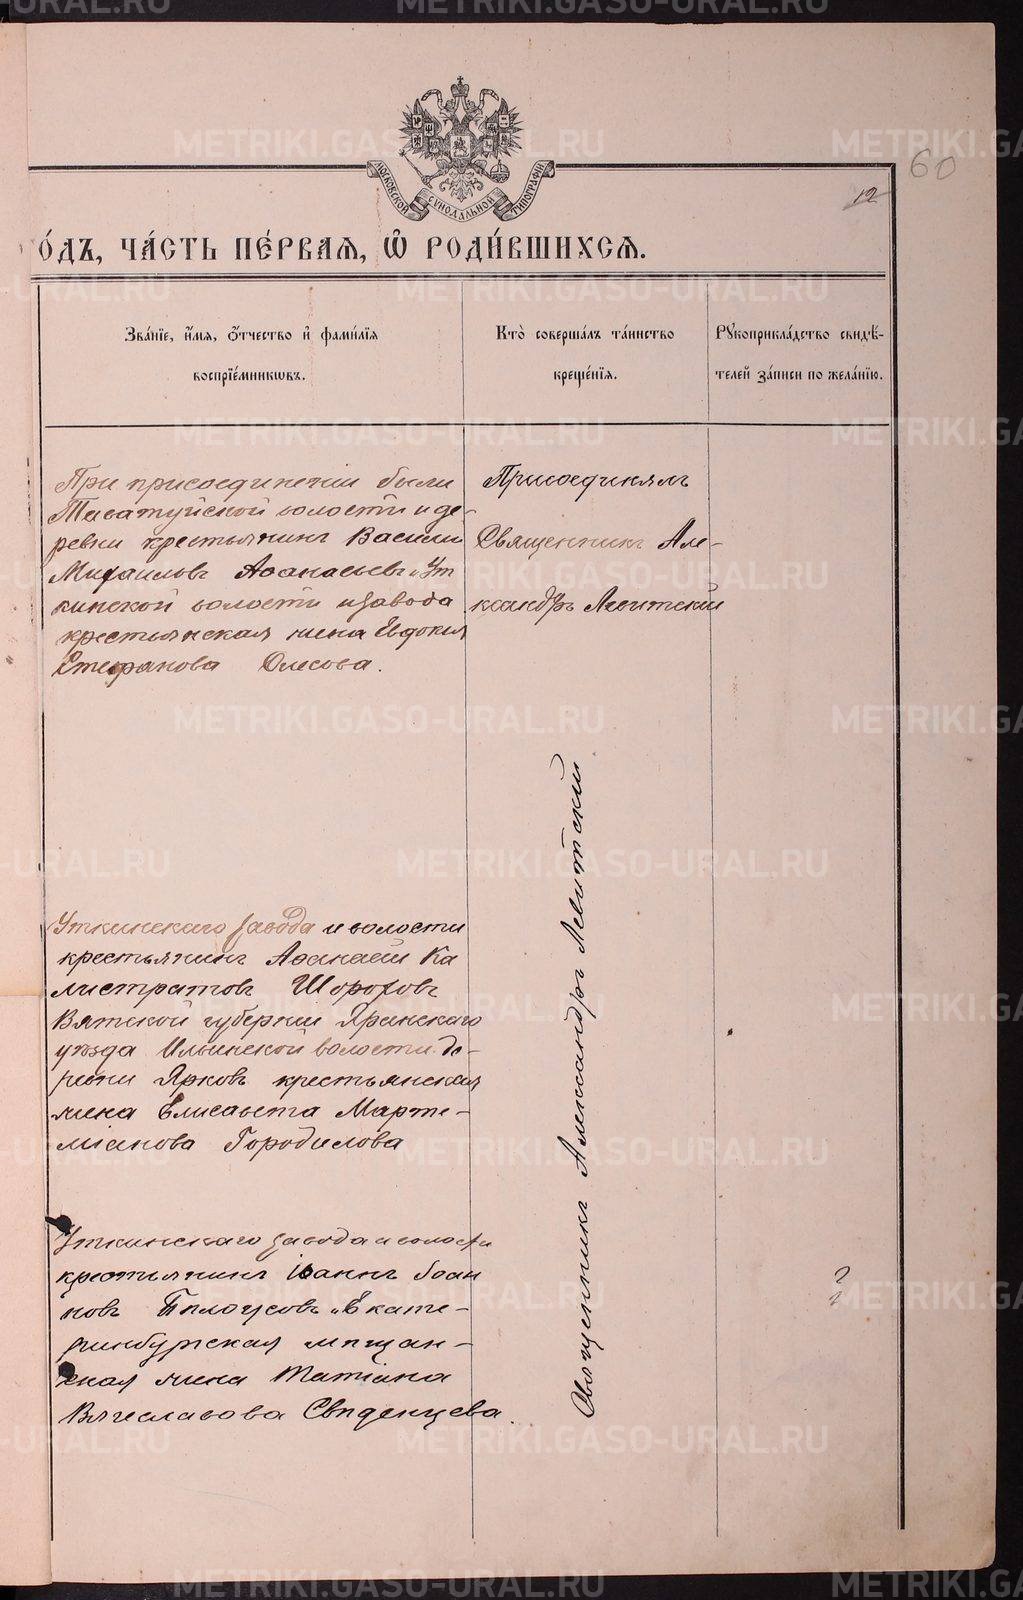 МОСКОВСКОЙ СѴНОДАЛЬНОЙ ТИПОГРАФІИ
60
12
О́ДЪ, ЧА́СТЬ ПЕ́РВАѦ, Ѡ҆ РОДИ́ВШИХСѦ.
Зва́нїе, и҆́мѧ, ѻ҆́тчество и҆ фами́лїѧ
воспрїе́мникѡвъ.
Кто̀ соверша́лъ та́инство
креще́нїѧ.
Рꙋкоприкла́дство свидѣ́-
телей за́писи по жела́нїю.
При присоединеніи были
волости и де-
ревни крестьянинъ Василий
Михаиловъ Аѳанасьевъ и Ут
кинской волости и завода
крестьянская жена Евдокия
Стефанова Олесова.
Присоединялъ
Священникъ Але-
ксандръ Левитский
Уткинскаго завода и волости
крестьянинъ Аѳанасій Ка
листратовъ Шороховъ
Вятской губерніи Яранскаго
уѣзда Ильинской волости де-
ревни Ярковъ крестьянская
жена Елисавета Марте-
міанова Городилова
Уткинскаго завода и волости
крестьянинъ Іоаннъ Іоан
новъ Бѣлоусовъ и Екате-
ринбургская мѣщан-
ская жена Татіана
Вячеславова Свѣденцева.
Священникъ Александръ Левитский
METRIKI.GASO-URAL.RU